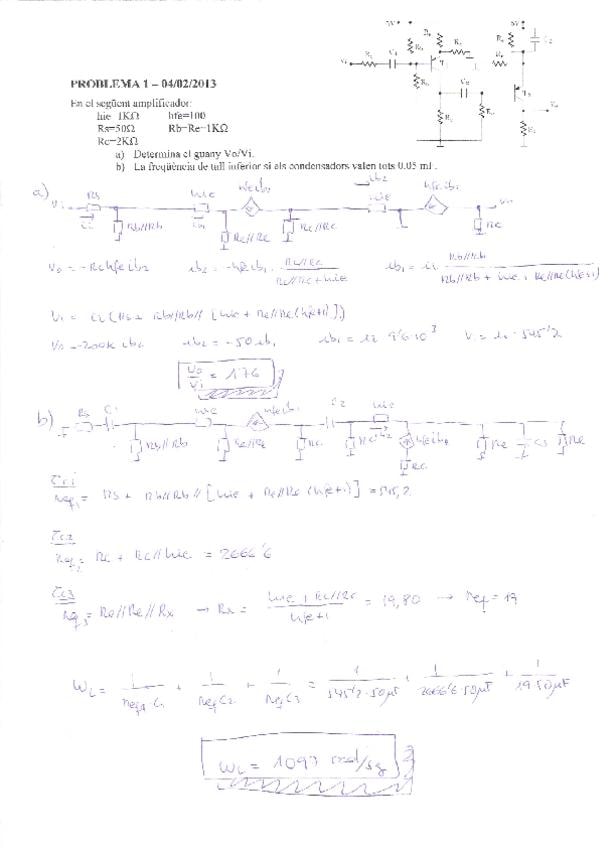 PROBLEMA 1 – 04/02/2013
En el següent amplificador:
hie=1KΩ hfe=100
Rs=50Ω Rb=Re=1KΩ
Rc=2KΩ
a) Determina el guany Vo/Vi.
b) La freqüència de tall inferior si els condensadors valen tots 0.05 mF.
a) Vi Rs hie hfe ib1 ib2 hie hfe ib2 Vo
Rb//Rb Re//Re Rc//Rc Rc
Vo = -Rc hfe ib2 ib2 = -hfe ib1 · Rc//Rc / Rc//Rc + hie ib1 = ii · Rb//Rb / Rb//Rb + hie + Re//Re (hfe+1)
Vi = ii (Rs + Rb//Rb// [hie + Re//Re (hfe+1)])
Vo = -200K ib2 ib2 = -50 ib1 ib1 = ii 9'6·10³ Vi = ii · 545'2
Vo/Vi = 176
b) Rs C1 hie hfe ib1 C2 hie
Rb//Rb Re//Re Rc Rc ib2 hfe ib2 Re C3 Re
Rc
Req1 = Rs + Rb//Rb// [hie + Re//Re (hfe+1)] = 545,2
Req2 = Rc + Rc//hie = 2666'6
Req3 = Re//Re//Rx → Rx = hie + Rc//Rc / hfe+1 = 19,80 → Req = 19
WL = 1 / Req1·C1 + 1 / Req C2 + 1 / Req C3 = 1 / 545'2·50µF + 1 / 2666'6·50µF + 1 / 19·50µF
WL = 1097 rad/sg